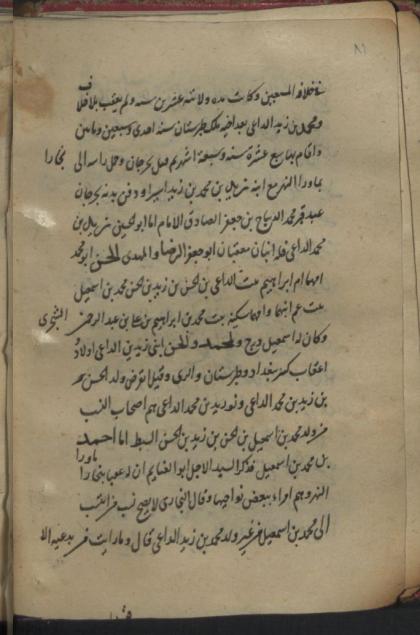 في خلافة المستعين وكانت مدة ولايته عشرين سنة ولم يعقب بلا خلاف
ومحمد بن زيد الداعي بعد اخيه ملك طبرستان سنة احدى وسبعين ومأتين
واقام بها سبع عشرة سنة وسبعة اشهر ثم قتل بجرجان وحمل راسه الى بخارا
بماورا النهر مع ابنه زيد بن محمد بن زيد اسيرا ودفن بدنه بجرجان
عند قبر محمد الديباج بن جعفر الصادق الامام اما ابو الحسين زيد بن
محمد الداعي فله ابنان معقبان ابو جعفر الرضا والمهدي الحسن ابو محمد
امهما ام ابراهيم بنت الداعي بن الحسن بن زيد بن الحسن محمد بن اسمعيل
بنت عم ابيهما وامها سكينة بنت محمد بن ابراهيم بن علي بن عبد الرحمن الشجري
وكان لاسمعيل ومحمد والحسن ابني زيد بن الداعي اولاد
اعقاب ببغداد وطبرستان والري وقيل انقرض ولد الحسن
بن زيد بن محمد الداعي وزيد بن محمد الداعي هم اصحاب النسب
من ولد محمد بن اسمعيل بن الحسن بن زيد بن الحسن السبط اما احمد
بن محمد بن اسمعيل فذكر السيد الاجل ابو الغنايم ان له عقبا ببخارا ماورا
النهر وهم امراء ببعض نواحيها وقال البخاري لا يصح نسب من انتسب
الى محمد بن اسمعيل من غير ولد محمد بن زيد الداعي قال وما رايت من يدعيه الا